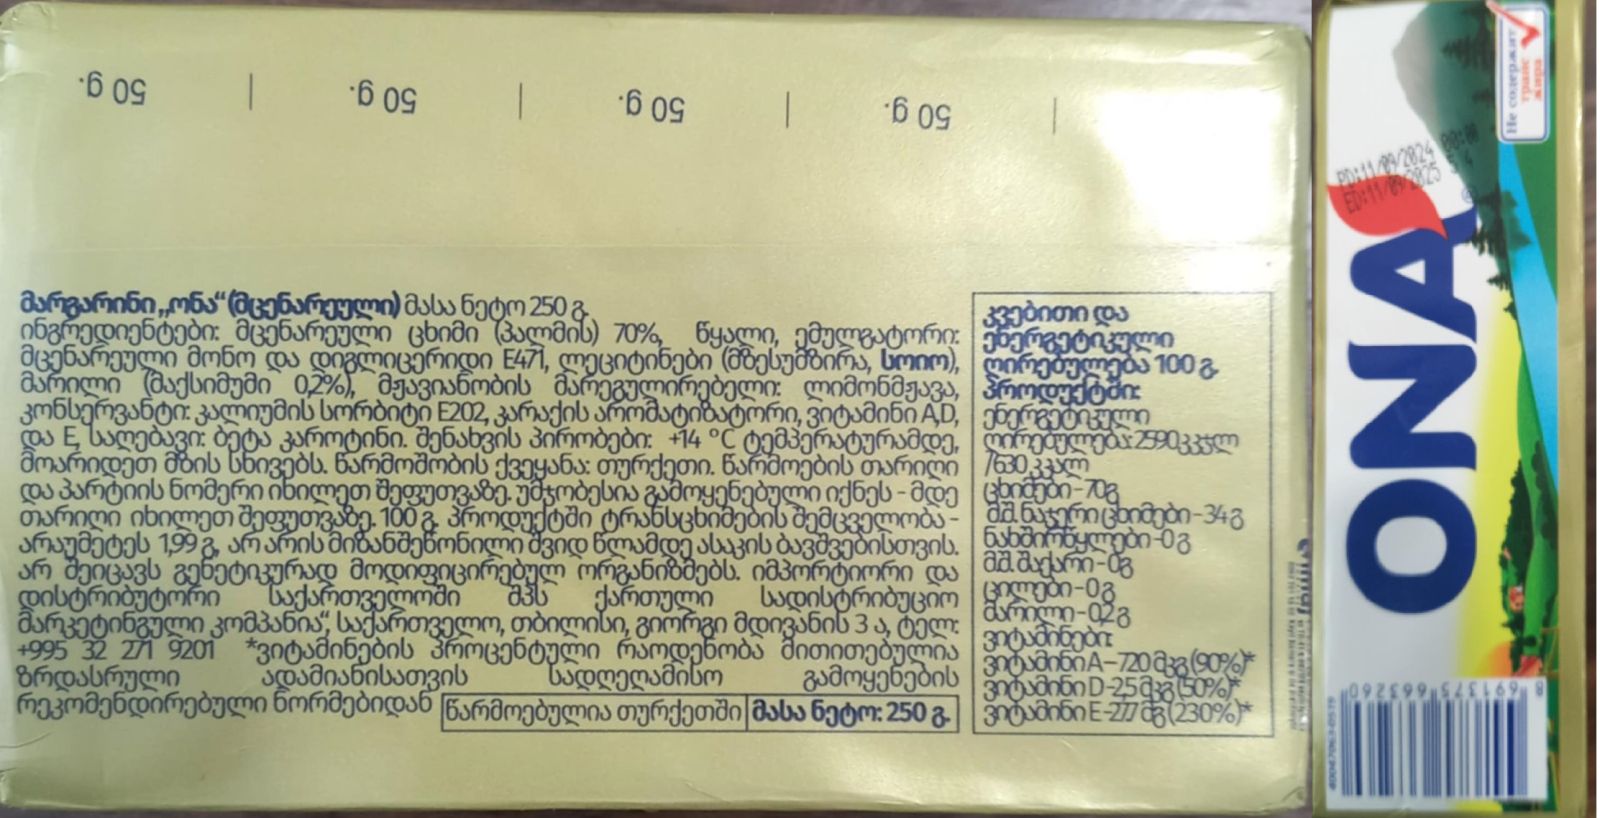 50 g.
50 g.
50 g.
50 g.
მარგარინი „ონა“ (მცენარეული) მასა ნეტო 250 გ.
ინგრედიენტები: მცენარეული ცხიმი (პალმის) 70%, წყალი, ემულგატორი:
მცენარეული მონო და დიგლიცერიდი E471, ლეციტინები (მზესუმზირა, სოიო),
მარილი (მაქსიმუმი 0,2%), მჟავიანობის მარეგულირებელი: ლიმონმჟავა,
კონსერვანტი: კალიუმის სორბიტი E202, კარაქის არომატიზატორი, ვიტამინი A,D,
და E, საღებავი: ბეტა კაროტინი. შენახვის პირობები: +14 °C ტემპერატურამდე,
მოარიდეთ მზის სხივებს. წარმოშობის ქვეყანა: თურქეთი. წარმოების თარიღი
და პარტიის ნომერი იხილეთ შეფუთვაზე. უმჯობესია გამოყენებული იქნეს - მდე
თარიღი იხილეთ შეფუთვაზე. 100 გ. პროდუქტში ტრანსცხიმების შემცველობა -
არაუმეტეს 1,99 გ, არ არის მიზანშეწონილი შვიდ წლამდე ასაკის ბავშვებისთვის.
არ შეიცავს გენეტიკურად მოდიფიცირებულ ორგანიზმებს. იმპორტიორი და
დისტრიბუტორი საქართველოში შპს ქართული სადისტრიბუციო
მარკეტინგული კომპანია“, საქართველო, თბილისი, გიორგი მდივანის 3 ა, ტელ:
+995 32 271 9201 *ვიტამინების პროცენტული რაოდენობა მითითებულია
ზრდასრული ადამიანისათვის სადღეღამისო გამოყენების
რეკომენდირებული ნორმებიდან
წარმოებულია თურქეთში
მასა ნეტო: 250 გ.
კვებითი და
ენერგეტიკული
ღირებულება 100 გ.
პროდუქტში:
ენერგეტიკული
ღირებულება: 2590კკჯლ
/630 კკალ
ცხიმები - 70გ
მ.შ. ნაჯერი ცხიმები - 34 გ
ნახშირწყლები -0 გ
მ.შ. შაქარი - 0გ
ცილები - 0 გ
მარილი - 0.2 გ
ვიტამინები:
ვიტამინი A – 720 მკგ (90%)*
ვიტამინი D -2,5 მკგ (50%)*
ვიტამინი E -27,7 მგ (230%)*
Не содержит
транс
жира
PD:11/09/2024 00:00
ED:11/09/2025 5 4
ONA®
8 691375 663260